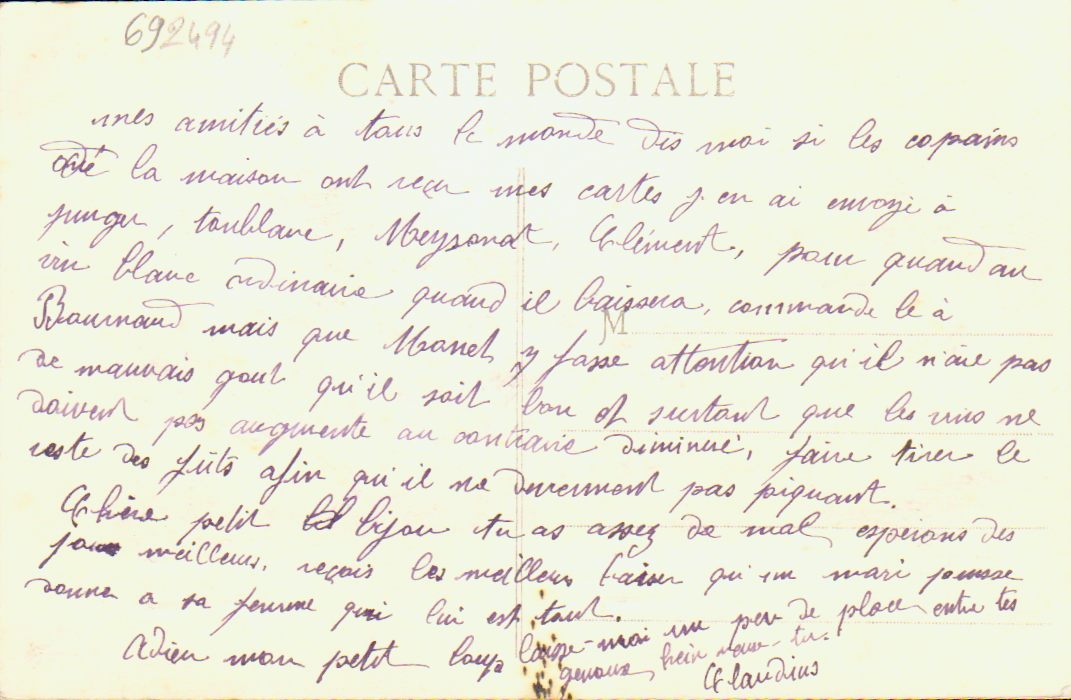 692494
CARTE POSTALE
mes amitiés à tous le monde dis moi si les copains
de la maison ont reçu mes cartes j en ai envoyé à
junger, toublanc, Meysonat, Clément, pour quand au
vin blanc ordinaire quand il baissera, commande le à
Bournaud mais que Monet y fasse attention qu'il n'aie pas
de mauvais gout qu'il soit bon et surtout que les vins ne
doivent pas augmenté au contraire diminué, faire tirer le
reste des fûts afin qu'il ne deviennent pas piquant.
Chère petit bijou tu as assez de mal espérons des
jours meilleurs, reçois les meilleurs baiser qu'un mari puisse
donner a sa femme qui lui est tout.
Adieu mon petit loup laisse-moi un peu de place entre tes
genoux hein veux-tu.
Claudius
M